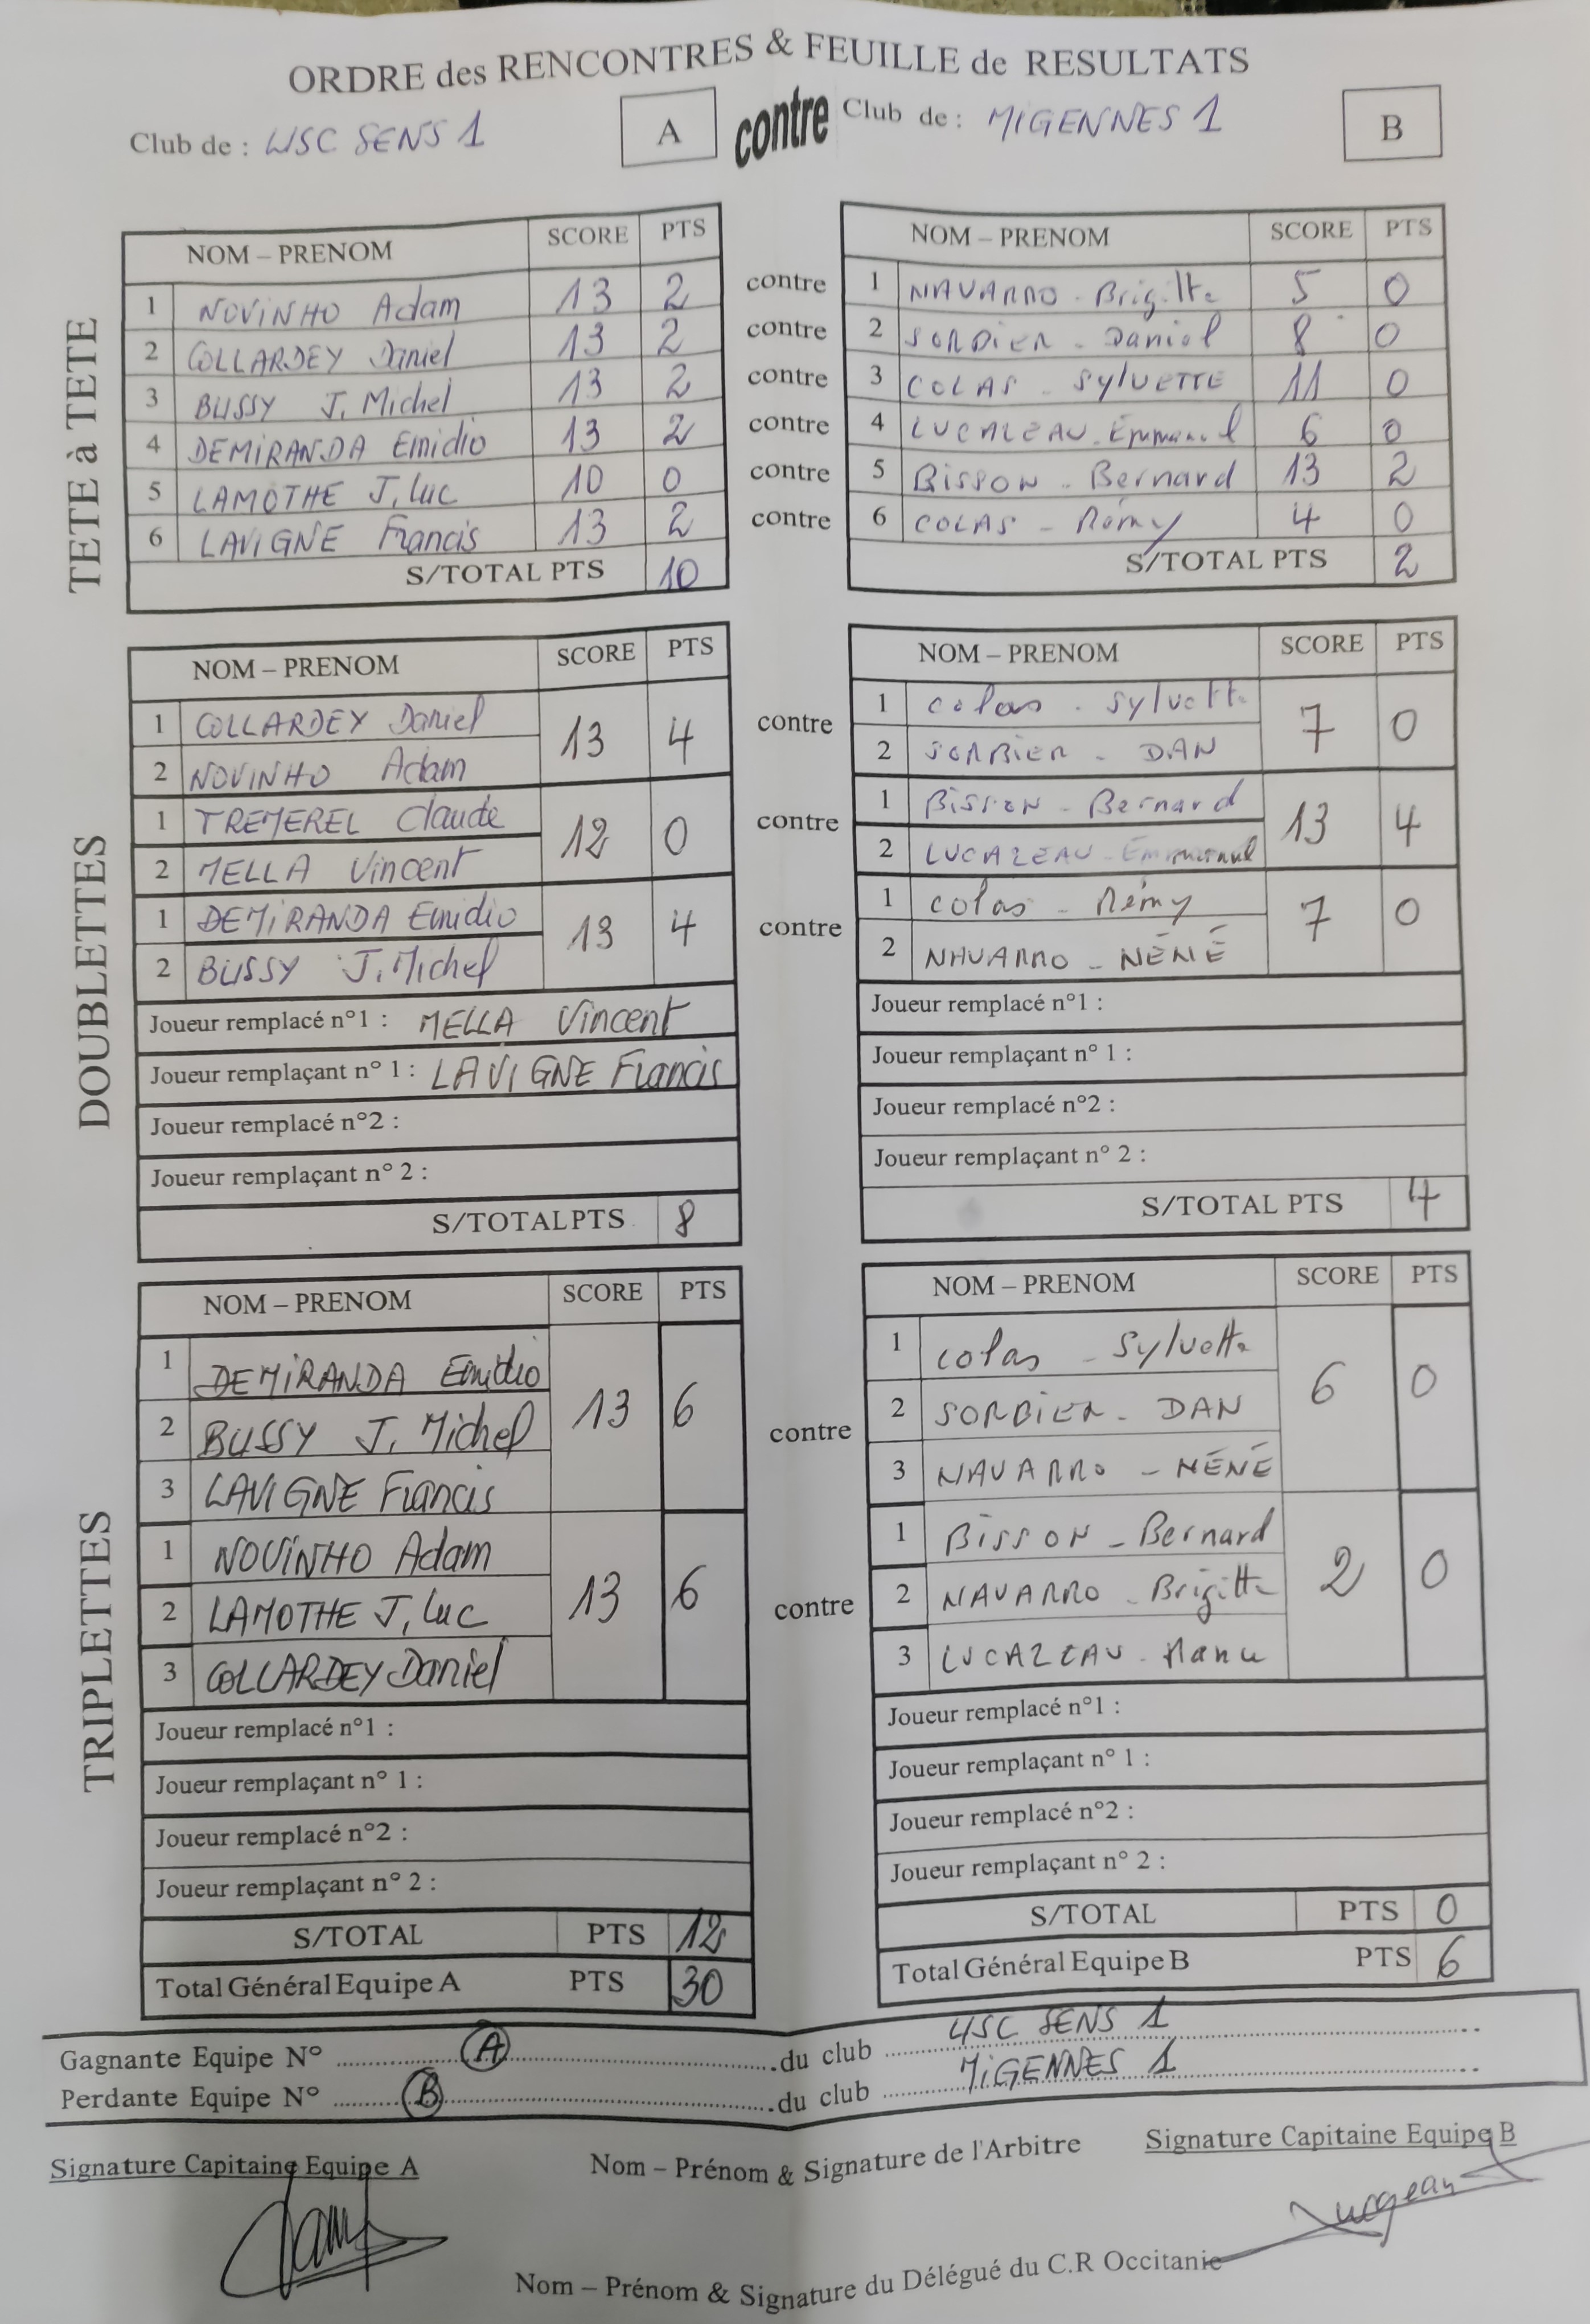 ORDRE des RENCONTRES & FEUILLE de RESULTATS
Club de : USC SENS 1 A contre Club de : MIGENNES 1 B
TETE à TETE
NOM – PRENOM SCORE PTS NOM – PRENOM SCORE PTS
1 NOVINHO Adam 13 2 contre 1 NAVARRO - Brigitte 5 0
2 COLLARDEY Daniel 13 2 contre 2 SORBIER - Daniel 8 0
3 BUSSY J. Michel 13 2 contre 3 COLAS - SylVETTE 11 0
4 DEMIRANDA Emidio 13 2 contre 4 LUCAZEAU - Emmanuel 6 0
5 LAMOTHE J. Luc 10 0 contre 5 BISSON - Bernard 13 2
6 LAVIGNE Francis 13 2 contre 6 COLAS - Rémy 4 0
S/TOTAL PTS 10 S/TOTAL PTS 2
DOUBLETTES
NOM – PRENOM SCORE PTS NOM – PRENOM SCORE PTS
1 COLLARDEY Daniel 13 4 contre 1 colas - Sylvette 7 0
2 NOVINHO Adam 2 SORBIER - DAN
1 TREMEREL Claude 12 0 contre 1 BISSON - Bernard 13 4
2 MELLA Vincent 2 LUCAZEAU - Emmanuel
1 DEMIRANDA Emidio 13 4 contre 1 colas - Rémy 7 0
2 BUSSY J. Michel 2 NAVARRO - NÉNÉ
Joueur remplacé n°1 : MELLA Vincent Joueur remplacé n°1 :
Joueur remplaçant n° 1 : LAVIGNE Francis Joueur remplaçant n° 1 :
Joueur remplacé n°2 : Joueur remplacé n°2 :
Joueur remplaçant n° 2 : Joueur remplaçant n° 2 :
S/TOTAL PTS 8 S/TOTAL PTS 4
TRIPLETTES
NOM – PRENOM SCORE PTS NOM – PRENOM SCORE PTS
1 DEMIRANDA Emidio 1 colas - Sylvette
2 BUSSY J. Michel 13 6 contre 2 SORBIER - DAN 6 0
3 LAVIGNE Francis 3 NAVARRO - NÉNÉ
1 NOVINHO Adam 1 BISSON - Bernard
2 LAMOTHE J. Luc 13 6 contre 2 NAVARRO - Brigitte 2 0
3 COLLARDEY Daniel 3 LUCAZEAU - Manu
Joueur remplacé n°1 : Joueur remplacé n°1 :
Joueur remplaçant n° 1 : Joueur remplaçant n° 1 :
Joueur remplacé n°2 : Joueur remplacé n°2 :
Joueur remplaçant n° 2 : Joueur remplaçant n° 2 :
S/TOTAL PTS 12 S/TOTAL PTS 0
Total Général Equipe A PTS 30 Total Général Equipe B PTS 6
Gagnante Equipe N° A du club USC SENS 1
Perdante Equipe N° B du club MIGENNES 1
Signature Capitaine Equipe A Nom – Prénom & Signature de l'Arbitre Signature Capitaine Equipe B
Nom – Prénom & Signature du Délégué du C.R Occitanie